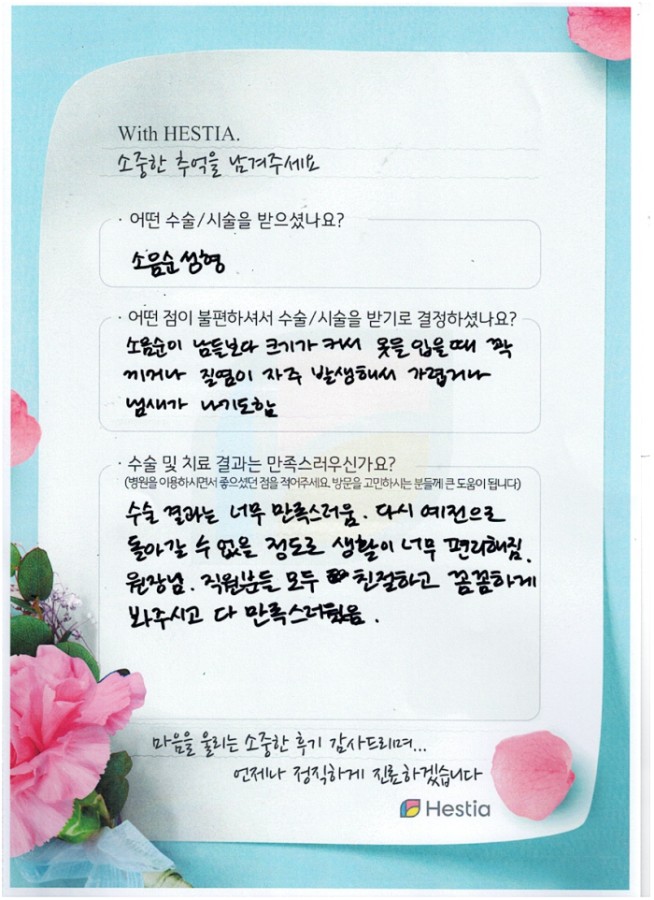 With HESTIA.
소중한 추억을 남겨주세요
· 어떤 수술/시술을 받으셨나요?
소음순성형
· 어떤 점이 불편하셔서 수술/시술을 받기로 결정하셨나요?
소음순이 남들보다 크기가 커서 옷을 입을때 꽉
끼거나 질염이 자주 발생해서 가렵거나
냄새가 나기도함
· 수술 및 치료 결과는 만족스러우신가요?
(병원을 이용하시면서 좋으셨던 점을 적어주세요. 방문을 고민하시는 분들께 큰 도움이 됩니다)
수술 결과는 너무 만족스러움. 다시 예전으로
돌아갈 수 없을 정도로 생활이 너무 편리해짐.
원장님. 직원분들 모두 친절하고 꼼꼼하게
봐주시고 다 만족스러웠음.
마음을 울리는 소중한 후기 감사드리며...
언제나 정직하게 진료하겠습니다
Hestia